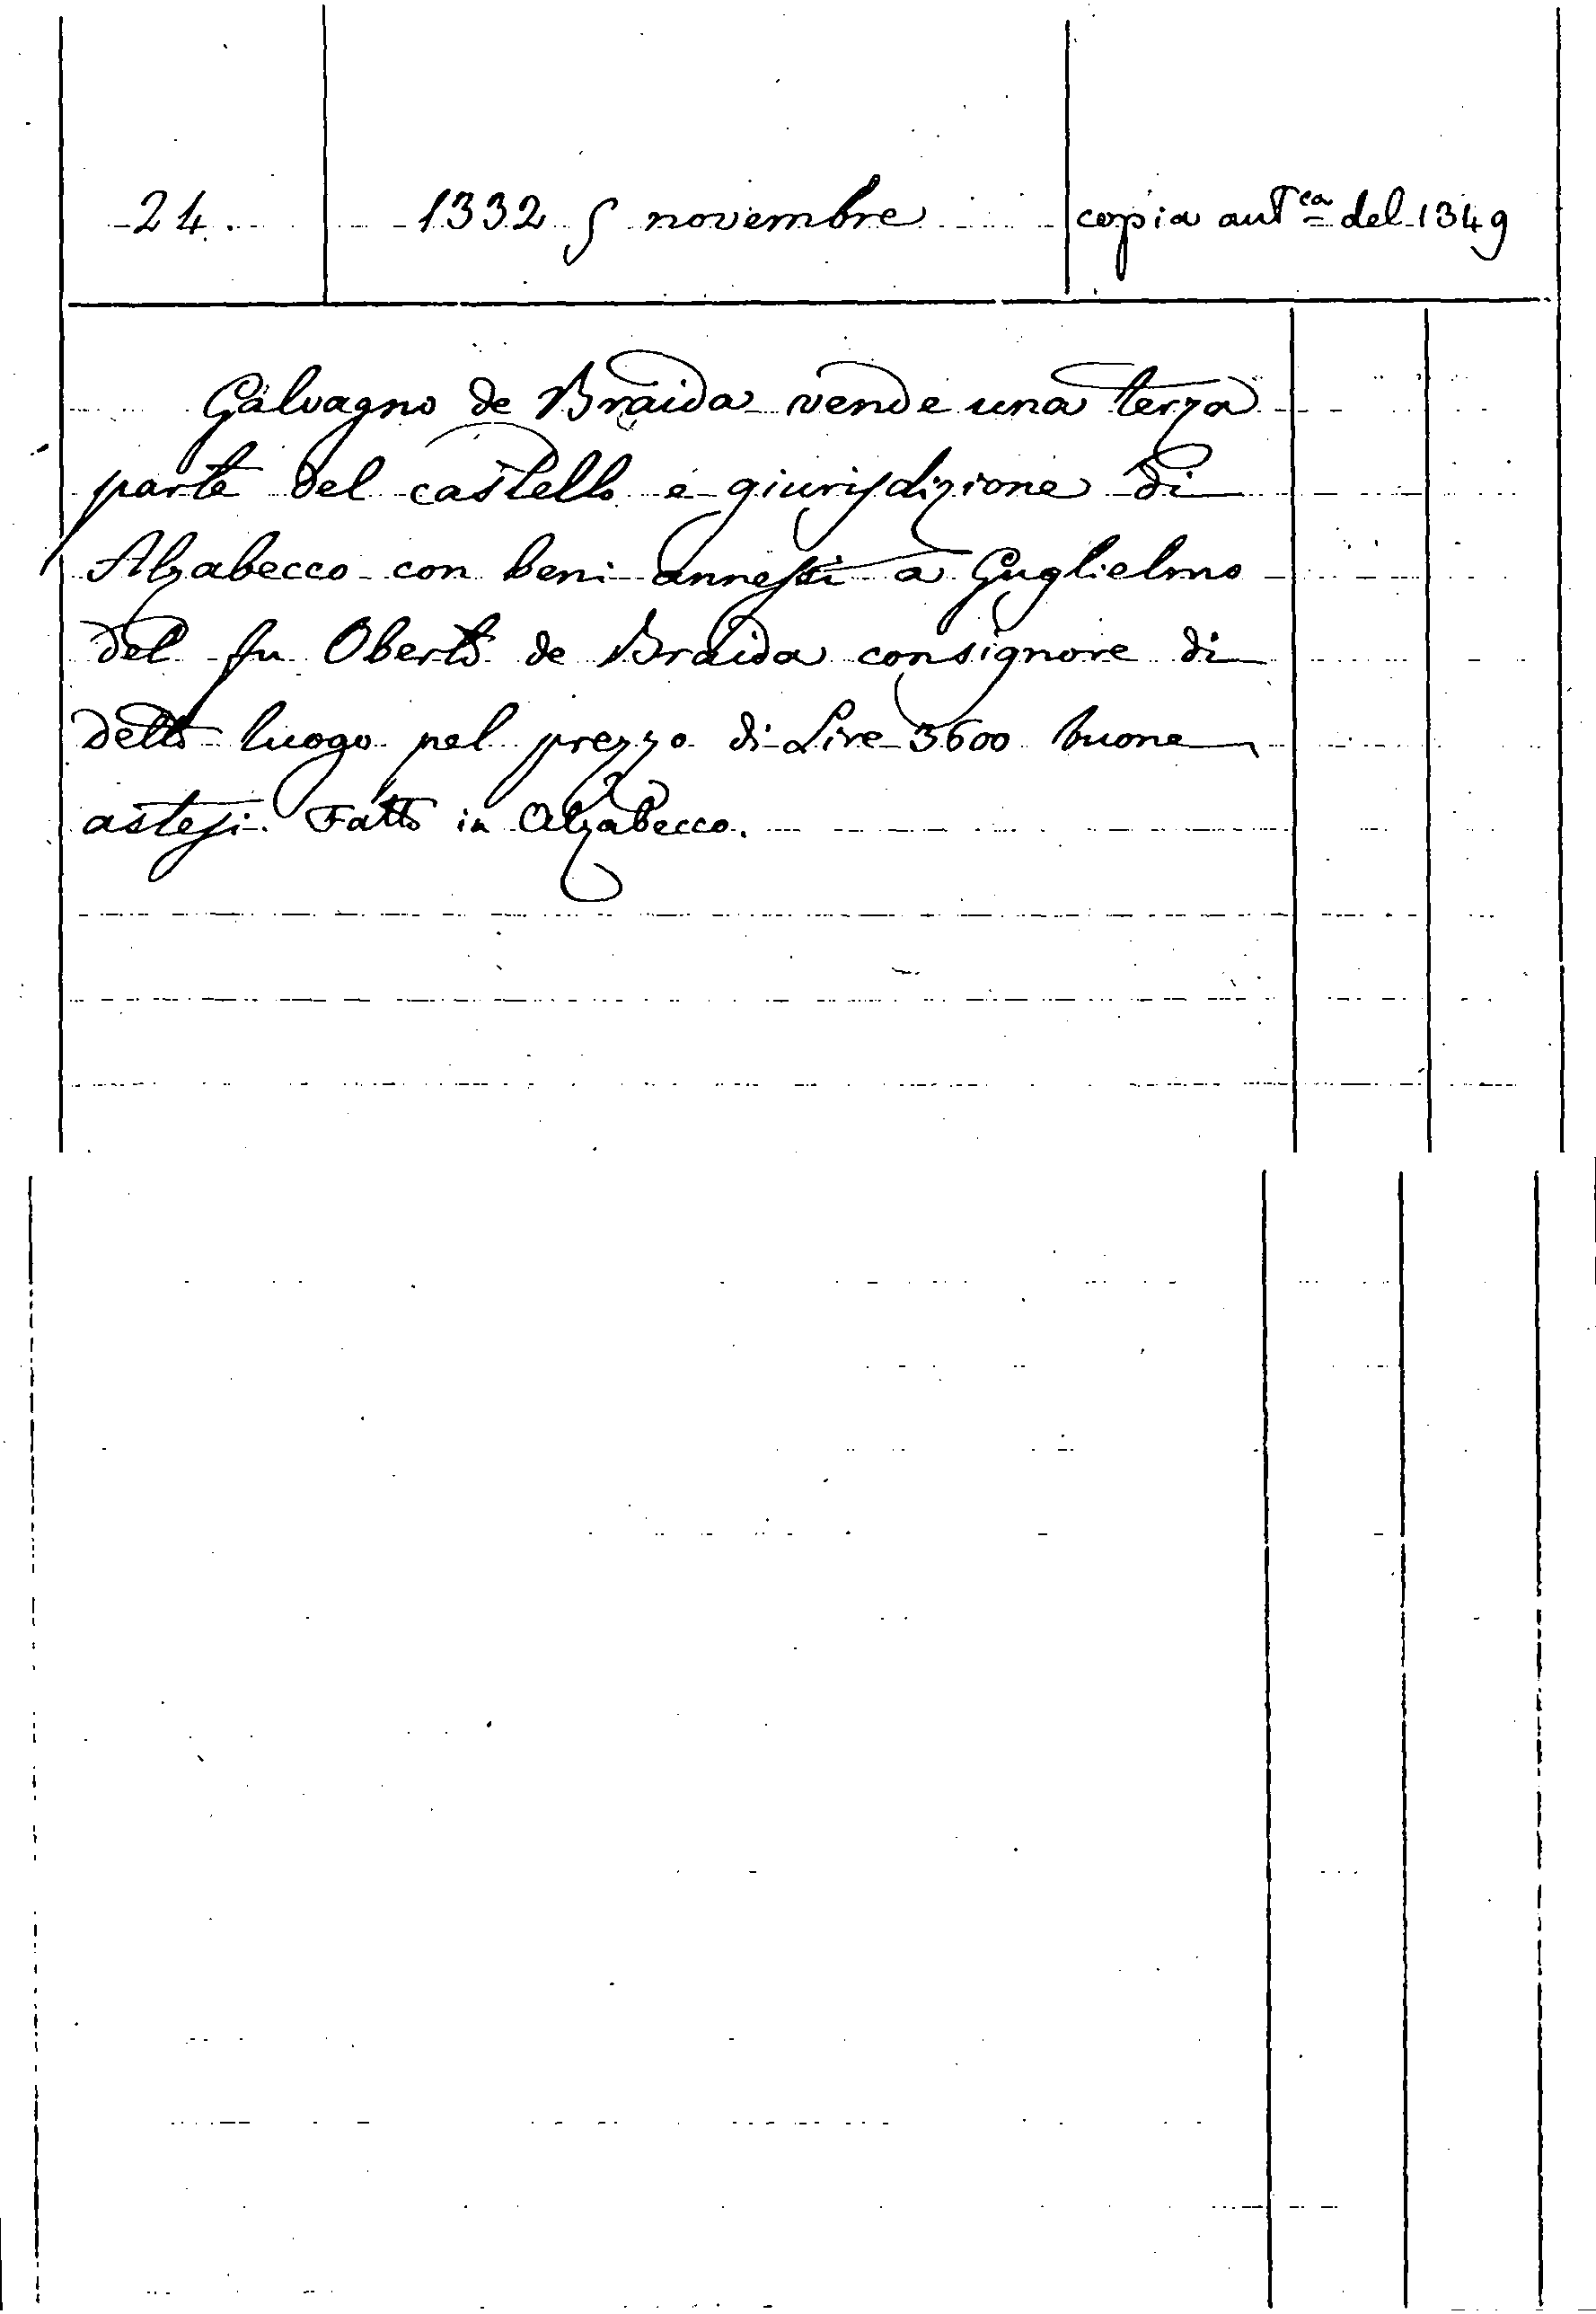 24. 1332 5 novembre copia aut.ca del 1349
Galvagno de Braida vende una terza
parte del castello e giurisdizione di
Alzabecco con beni annessi a Guglielmo
del fu Oberto de Braida consignore di
detto luogo pel prezzo di Lire 3600 buone
astesi. Fatto in Alzabecco.